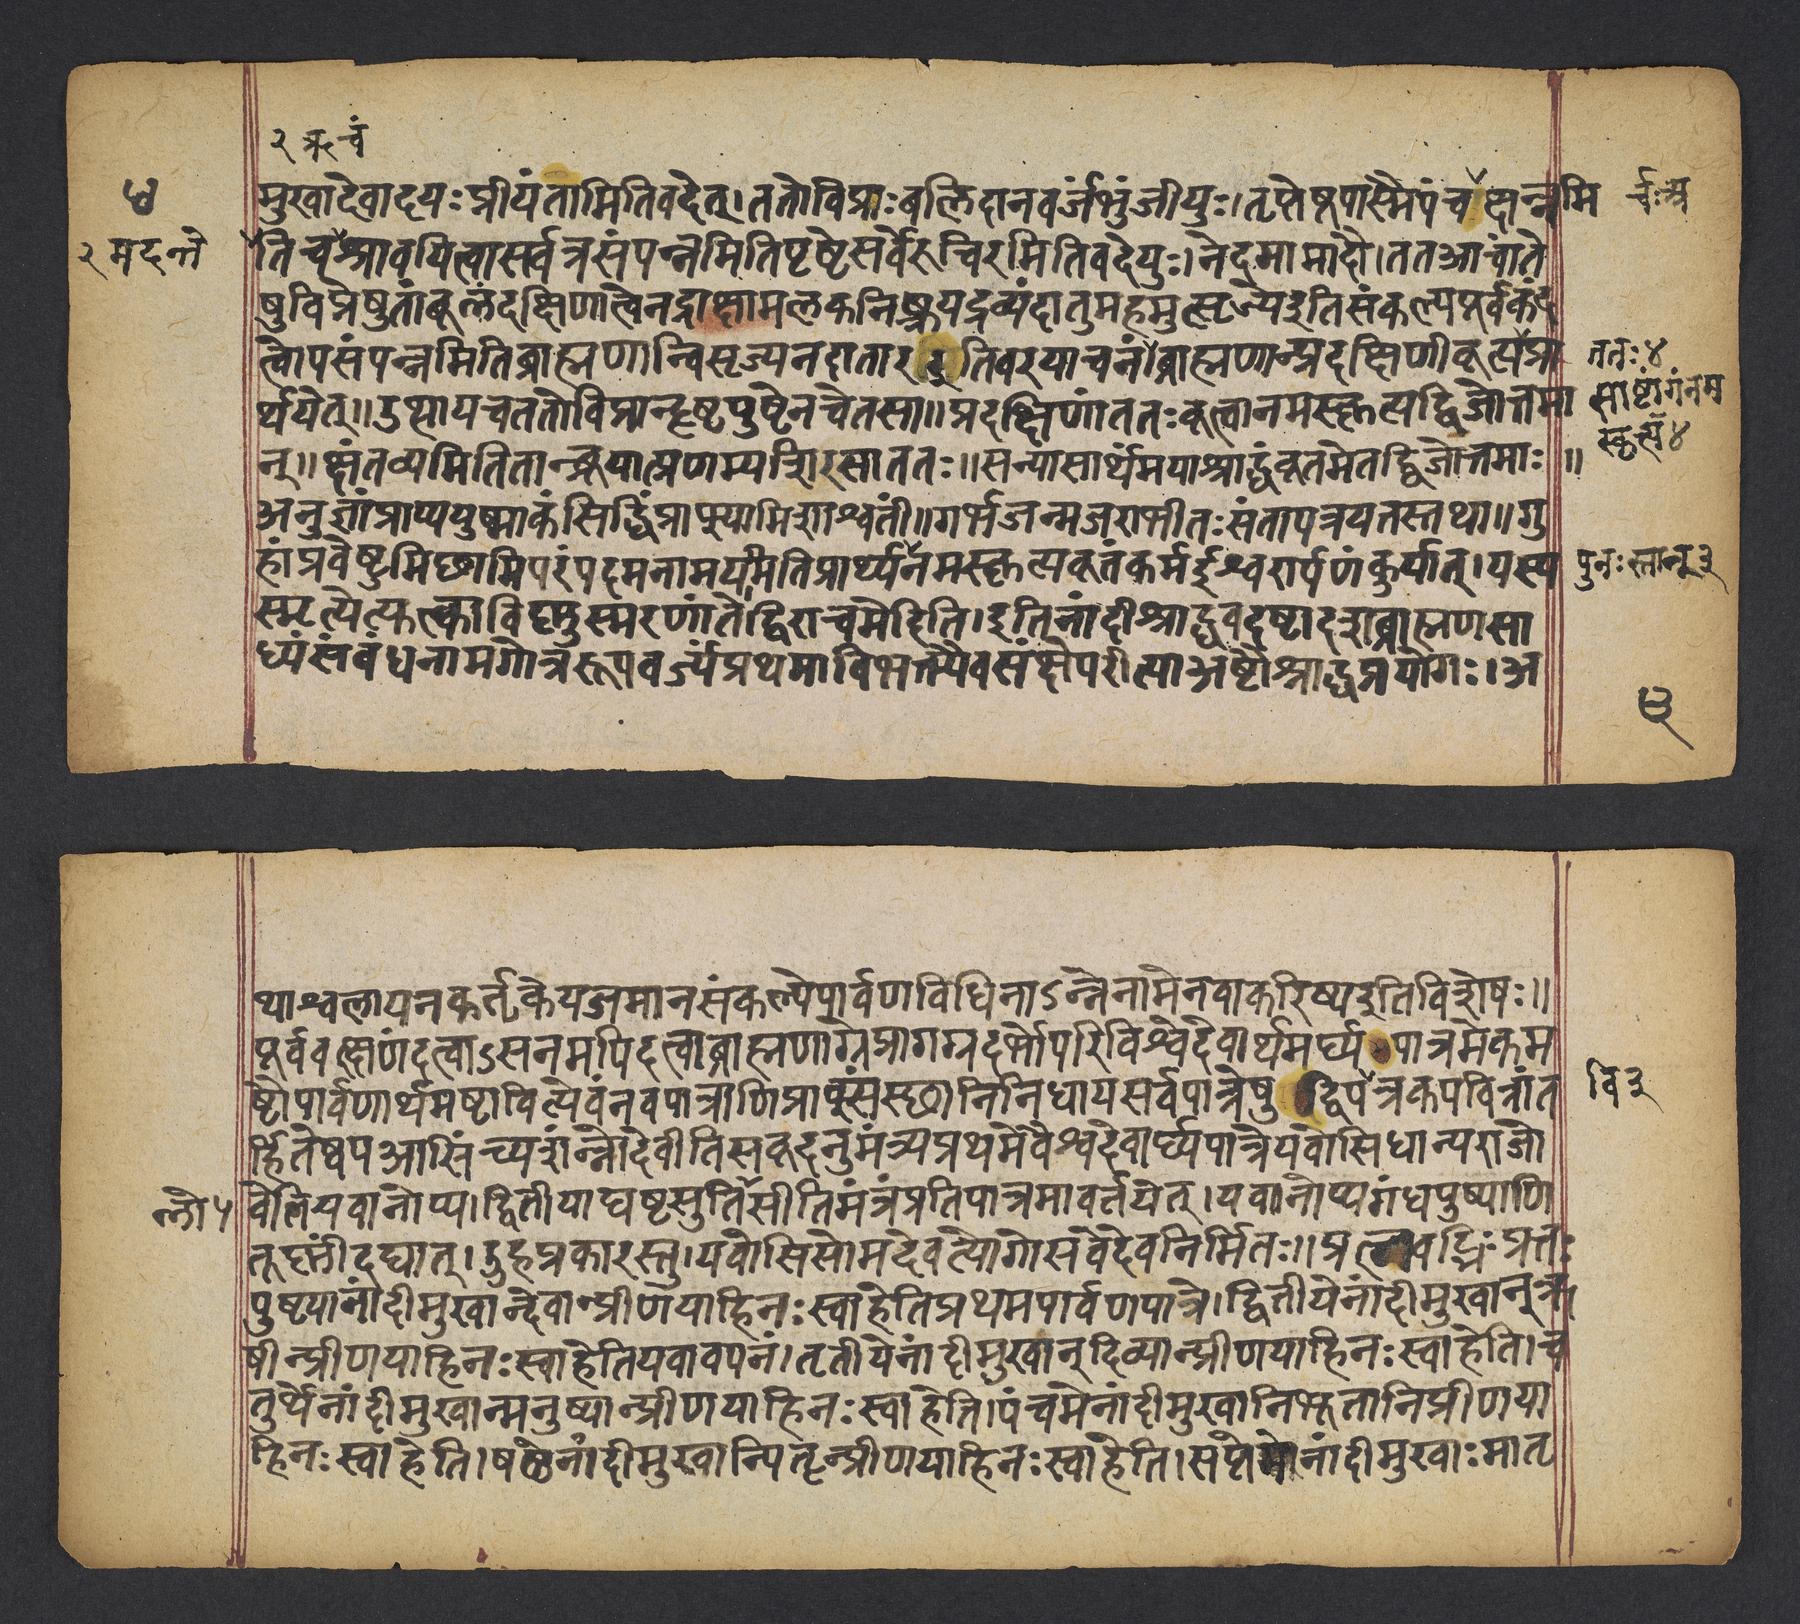 २ ऋचं
५
मुखादेवादयः प्रीयंतामितिवदेत्। ततोविप्राः बलिदानवर्जंभुंजीयुः। तृप्तेषूपास्मैपंच क्षन्नमि
र्चःअ
२ मदन्ते
तिचश्रावयित्वासर्वत्रसंपन्नमितिपृष्टेसर्वेरुचिरमितिवदेयुः। नेदमामादौ। ततआचांते
षुविप्रेषुतांबूलंदक्षिणात्वेनद्राक्षामलकनिष्क्रयद्रव्यंदातुमहमुत्सृज्येइतिसंकल्पपूर्वकंद
त्वोपसंपन्नमितिब्राह्मणान्विसृज्यनदातारइतिवरयाचनं। ब्राह्मणान्प्रदक्षिणीकृत्यप्रा
ततः४
र्थयेत्॥ उत्थायचततोविप्रान्हृष्टपुष्टेनचेतसा॥ प्रदक्षिणांततःकृत्वानमस्कृत्यद्विजोत्तमा
साष्टांगंनम
स्कृत्य ४
न्॥ क्षंतव्यमितितान्ब्रूयात्प्रणम्यशिरसाततः॥ सन्यासार्थंमयाश्राद्धंकृतमेतद्द्विजोत्तमाः॥
अनुज्ञांप्राप्ययुष्माकंसिद्धिंप्राप्स्यामिशाश्वतीं॥ गर्भजन्मजराभीतःसंतापत्रयतस्तथा॥ गु
हांप्रवेष्टुमिछामिपरंपदमनामयमितिप्रार्थ्यनमस्कृत्यकृतंकर्मईश्वरार्पणंकुर्यात्। यस्य
पुनःस्नान् ३
स्मृत्येत्युक्त्काविष्णुस्मरणांतेद्विराचमेदिति। इतिनांदीश्राद्धवदष्टादशब्राह्मणसा
ध्यंसंबंधनामगोत्ररूपवर्ज्यंप्रथमाविभक्त्यैवसंक्षेपरीत्याअष्टौश्राद्धप्रयोगः। अ
थाश्वलायनकर्तृकेयजमानसंकल्पेपार्वणविधिनाऽन्नेनामेनवाकरिष्यइतिविशेषः॥
पूर्ववत्क्षणंदत्वाऽसनमपिदत्वाब्राह्मणाग्रेप्रागग्रदर्भोपरिविश्वेदेवार्थमर्घ्यपात्रमेकम
ष्टौपार्वणार्थमष्टावित्येवंनवपात्राणिप्राक्संस्छानिनिधायसर्वपात्रेषुद्विपत्रकपवित्रांत
वि ३
र्हितेष्वपआसिंच्यशंन्नोदेवीतिसकृदनुमंत्र्यप्रथमेवैश्वदेवार्घ्यपात्रेयवोसिधान्यराजो
वेतियवानोप्य। द्वितीयाद्यष्टसुतिसीतिमंत्रंप्रतिपात्रमावर्तयेत्। यवानोप्यगंधपुष्पाणि
तूष्णींदद्यात्। ऊहप्रकारस्तु। यवोसिसोमदेवत्योगोसवेदेवनिर्मितः॥ प्रत्नवद्भिः प्रत्तः
पुष्टयानांदीमुखान्देवान्प्रीणयाहिनः स्वाहेतिप्रथमपार्वणपात्रे। द्वितीयेनांदीमुखानृ
षीन्प्रीणयाहिनः स्वाहेतियवावपनं। तृतीयेनांदीमुखान्दिव्यान्प्रीणयाहिनः स्वाहेति। च
तुर्थेनांदीमुखान्मनुष्यान्प्रीणयाहिनः स्वाहेति। पंचमेनांदीमुखानिभूतानिप्रीणया
हिनः स्वाहेति। षष्ठेनांदीमुखान्पितॄन्प्रीणयाहिनः स्वाहेति। सप्तमेनांदीमुखाःमातृ